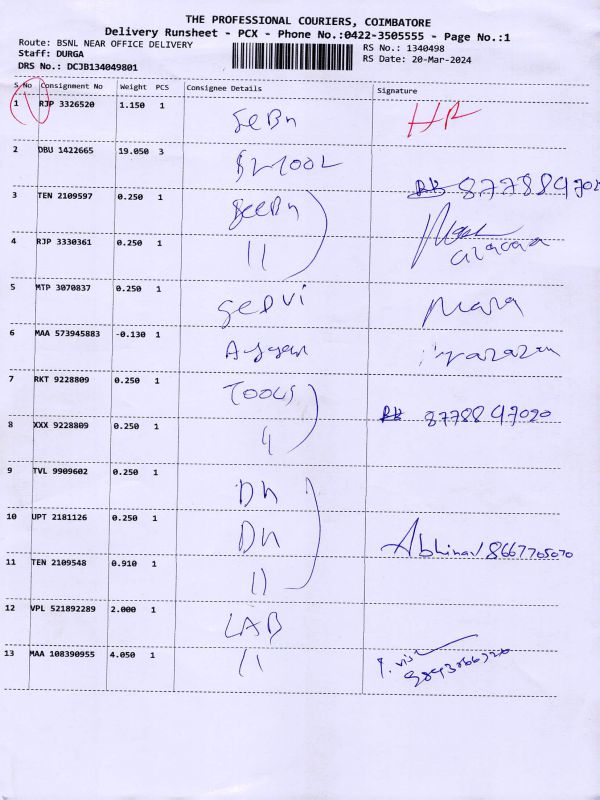 THE PROFESSIONAL COURIERS, COIMBATORE
Delivery Runsheet - PCX - Phone No.:0422-3505555 - Page No.:1
Route: BSNL NEAR OFFICE DELIVERY
RS No.: 1340498
Staff: DURGA
RS Date: 20-Mar-2024
DRS No.: DCJB134049801
S No Consignment No Weight PCS Consignee Details Signature
1 RJP 3326520 1.150 1 HR
2 DBU 1422665 19.050 3
3 TEN 2109597 0.250 1
4 RJP 3330361 0.250 1 11
5 MTP 3070837 0.250 1
6 MAA 573945883 -0.130 1
7 RKT 9228809 0.250 1 TOOLS
8 XXX 9228809 0.250 1
9 TVL 9909602 0.250 1 Dn
10 UPT 2181126 0.250 1 Dn Abhinav 8667705070
11 TEN 2109548 0.910 1 11
12 VPL 521892289 2.000 1 LAB
13 MAA 108390955 4.050 1 11